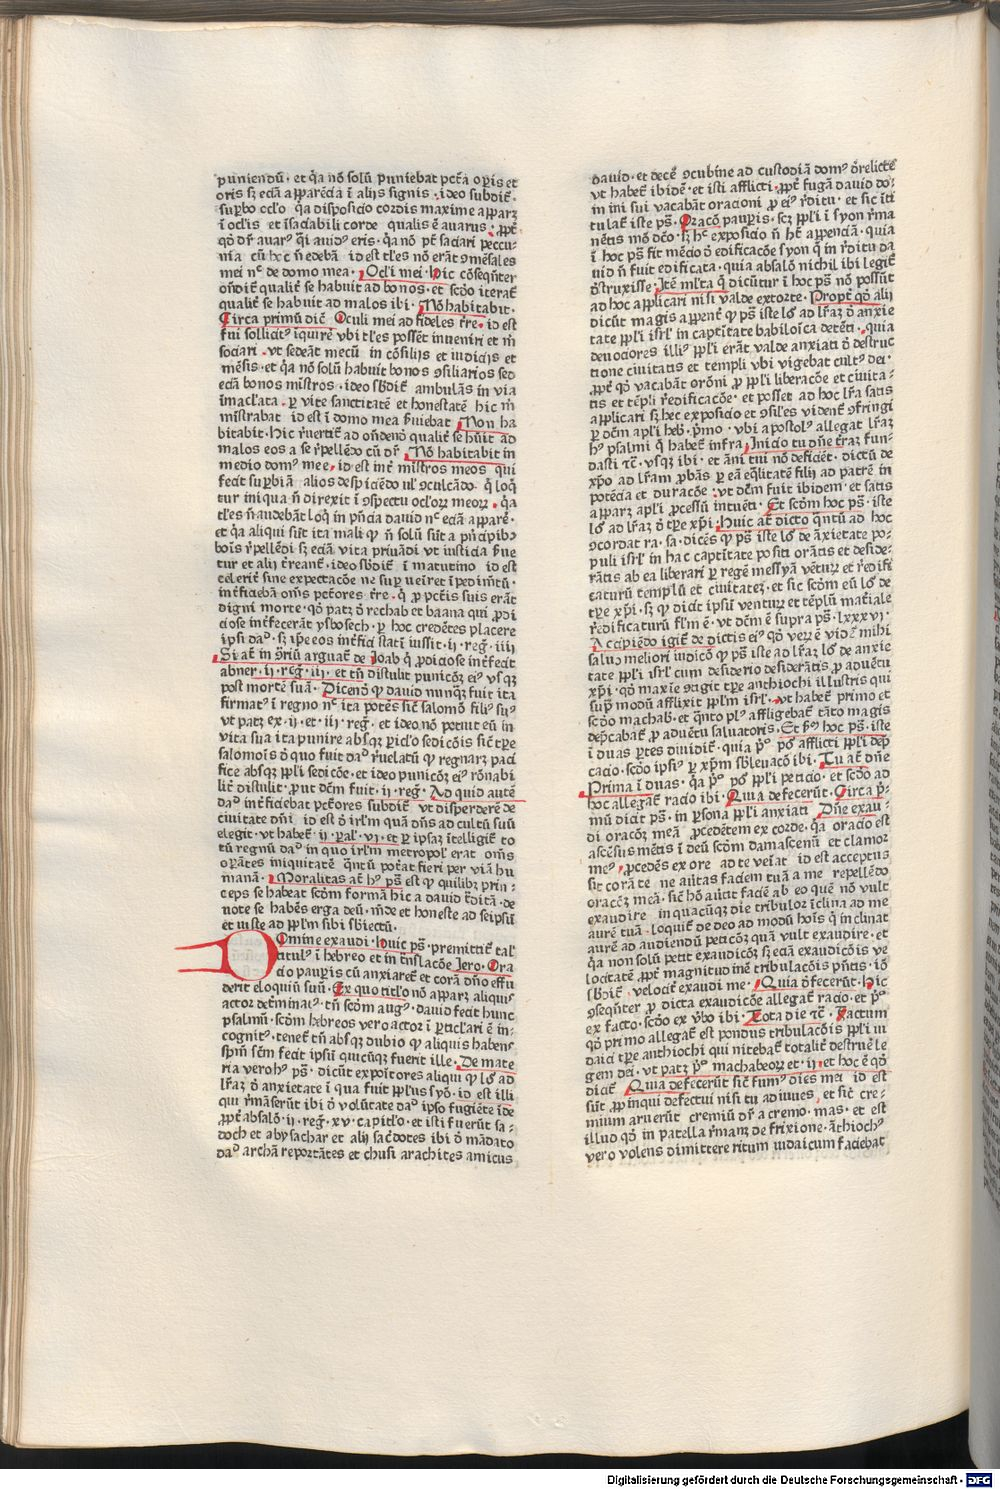 puniendū· et q̄a nō solū puniebat pctā opis et
oris sȝ eciā apparēcia ī alijs signis · ideo subdit̄·
supbo oclo q̄a disposicio cordis maxime apparȝ
ī oclis et īsaciabili corde qualis ē auarus ·
nia cū hoc n̄ edebā id est tl̄es nō erāt ꝯmēsales
mei nc̄ de domo mea · Ocl̄i mei · hic cōseq̄nter
oñdit̄ qualit̄ se habuit ad bonos · et scd̄o iterat̄
qualit̄ se habuit ad malos ibi · Nō habitabit·
Circa primū dic̄ Oculi mei ad fideles tr̄e· id est
fui sollicitꝰ īquire̅ vbi tl̄es possēt inveniri et m̄
sociari · vt sedeāt mecū in cōsilijs et iudicijs et
mēsis · et q̄a nō solū habuit bonos ꝯsiliarios sed
eciā bonos mīstros · ideo sbdit̄ ambulās in via
īmacl̄ata · ꝑ vite sanctitatē et honestatē hic m̄
mīstrabat id est ī domo mea ẜuiebat Non ha
bitabit· hic r̄uertit̄ ad on̄denō qualit̄ se hūit ad
malos eos a se r̄pellēdo cū dr̄ Nō habitabit in
medio domꝰ mee· id est int̄ mīstros meos qui
facit supbiā alios despiciēdo ul' ꝯculcādo· q̄ loq̄
tur iniqua n̄ direxit ī ꝯspectu oclor̄ meor̄ · q̄a
tl̄es n̄ audebāt loq̄ in pn̄cia dauid nc̄ eciā apparē·
et q̄a aliqui sūt ita mali q̇ n̄ solū sūt a pn̄cipibꝰ
bois r̄pellēdi sȝ eciā vita priuādi vt iusticia ẜue
tur et alij tr̄eant̄ · ideo sbdit̄ ī matutino id est
celerit̄ sine expectacōe ne sup ueīret īpedimtū·
int̄ficiebā om̄s pctōres tr̄e· q̄ ꝓ pctis suis erāt
digni morte · qō patȝ ō rechab et baana qui ꝓdi
ciose int̄fecerāt ysbosech · ꝑ hoc credētes placere
ipsi daᵈ· sȝ ip̄e eos int̄fici statī iussit · ij · reg̅ · iiij
Si at̄ in ꝯriū arguat̄ de Joab q̄ ꝓdiciose int̄fecit
abner · ij · reg̅ · iij · et tn̄ distulit punicōȝ eiꝰ vsqȝ
post mortē suā · Dicenō q̇ dauid nunqȝ fuit ita
firmatꝰ ī regno nc̄ ita potēs sic̄ salomō filiꝰ suꝰ
vt patȝ ex · ij · et · iij · reg̅ · et ideo nō potuit eū in
vita sua ita punire absqȝ ꝑicl̄o sedicōis sic̄ tꝑe
salomois ō quo fuit daᵈ r̄uelatū q̇ regnarȝ paci
fice absqȝ ppl̄i sedicōe · et ideo punicōȝ eiꝰ rōnabi
lit̄ distulit · ꝓut dc̄m fuit · ij · reg̅ · Ad quid autē
daᵈ int̄ficiebat pctōres subdit̄ vt disperderē de
ciuitate dn̄i id est ō irl̄m quā dn̄s ad cultū suū
elegit · vt habet̄ ij · pal̄ · vj · et ꝑ ipsaȝ itelligit̄ to
tū regnū daᵈ in quo irl̄m metropol̄ erat om̄s
oꝑantes iniquitatē q̄ntū potāt fieri per viā hu
manā · Moralitas at̄ hꝰ pṡ est q̇ quilibȝ prin-
ceps se habeat scd̄m formā hic a dauid t̄ditā · de
uote se habēs erga deū · mūde et honeste ad seipsū
et iuste ad ppl̄m sibi sbiectū·
Domine exaudi · huic pṡ · premittit̄ tal'
titulꝰ ī hebreo et in t̄nslacōe Jero · Ora
cio paupis cū anxiaret̄ et corā dn̄o effu
derit eloquiū suū · Ex quo titl̄o nō apparȝ aliquis
actor det̄minatꝰ · tn̄ scd̄m augꝰ · dauid fecit hunc
psalmū · scd̄m hebreos vero actor ī ꝑticl̄ari ē in-
cognitꝰ · tenet̄ tn̄ absqȝ dubio q̇ aliquis habens
spm̄ sc̄m fecit ipsū quicūqȝ fuerit ille · De mate
ria vero hꝰ pṡ · dicūt expōitores aliqui q̇ lōᵈ ad
lr̄aȝ ō anxietate ī qua fuit pplꝰus syō· id est illi
qui r̄māserūt ibi ō volūtate daᵈ ipso fugiēte īde
ꝓpt̄ absalō · ij · reg̅ · xv · capitl̄o · et isti fuerūt sa-
doch et abysachar et alij sac̄dotes ibi ō mādato
daᵈ archā reportātes et chusi arachites amicus
dauid · et decē ꝯcubine ad custodiā domꝰ d̄relicte
vt habet̄ ibidē · et isti afflicti · ꝓpt̄ fugā dauid do-
mini sui vacabāt oracioni ꝓ eiꝰ r̄ditu · et sic īti
tulat̄ iste pṡ · Oracō paupis· scȝ ppl̄i ī syon r̄ma
nētis mō dc̄o · sȝ hc̄ exposicio n̄ hȝ appenciā · quia
ī hoc pṡ fit mēcio ō edificacōe syon q̄ in r̄ditu da
uid n̄ fuit edificata · quia absalō nichil ibi legit̄
d̄struxisse · Jtē ml̄ta q̄ dicūtur ī hoc pṡ nō possūt
ad hoc applicari nisi valde extorte · Propt̄ qō alij
dicūt magis apparent̄ q̇ pṡ iste lōᵈ ad lr̄aȝ ō anxie
tate ppl̄i isrl̄ in captītate babiloīca detēti · quia
deuociores illiꝰ ppl̄i erāt valde anxiati ō destruc
tione ciuitatis et templi vbi vigebat cultꝰ dei·
ꝓpt̄ qō vacabāt orōni ꝓ ppl̄i liberacōe et ciuita-
tis et tēpli r̄edificacōe · et posset ad hoc lr̄a satis
applicari sȝ hec exposicio et ꝯsiles vident̄ ꝯfringi
ꝑ dc̄m apl̄i heb̄· pͥmo · vbi apostolꝰ allegat lr̄aȝ
hꝰ psalmi q̄ habet̄ infra · Jnicio tu dn̄e tr̄aȝ fun-
dasti ⁊c̄ · vsqȝ ibi · et āni tui nō deficiēt · dictū de
xp̄o ad lr̄am ꝓbās ꝑ eā eq̄litatē filij ad patrē in
potēcia et duracōe · vt dc̄m fuit ibidem · et satis
apparȝ apl̄i ꝓcessū intuēti · Et scd̄m hoc pṡ · iste
lōᵈ ad lr̄aȝ ō tꝑe xp̄i · Huic at̄ dicto q̄ntū ad hoc
ꝯcordat ra · sa · dicēs q̇ pṡ iste lōᵈ de āxietate po-
puli isrl̄ in hac captītate positi orātis et deside-
rātis ab ea liberari ꝑ regē messyā vētuȝ et r̄edifi
caturū templū et ciuitateȝ · et sic scd̄m eū lōᵈ de
tꝑe xp̄i · sȝ q̇ dicit ipsū ventuȝ et tēplū mat̄iale
r̄edificaturū fl̄m ē · vt dc̄m ē supra pṡ · lxxxvj·
Accipiēdo igit̄ de dictis eiꝰ qō veȝ ē vidēt̄ mihi
saluo meliori iudicō q̇ pṡ iste ad lr̄aȝ lōᵈ de anxie
tate ppl̄i isrl̄ cum desiderio desiderātis ꝓ aduētu
xp̄i · qō maxīe ꝯtigit tꝑe anthiochi illustris qui
sup̄ modū afflixit ppl̄m isrl̄ · vt habet̄ primo et
scd̄o machab̄· et q̄nto plꝰ affligebat̄ tāto magis
dep̄cabat̄ ꝓ aduētu saluatoris · Et sͥ hoc pṡ · iste
ī duas ꝑtes diuidit̄ · quia pͦ ponit̄ afflicti ppl̄i dep̄
cacio · scd̄o ipsiꝰ ꝑ xp̄m sbleuacō ibi · Tu at̄ dn̄e
Prima ī duas · q̄a pͦ poᵗ ppl̄i peticio · et scd̄o ad
hoc allegat̄ racio ibi · Quia defecerūt· Circa pͥ-
mū dicit pṡ· in ꝑsona ppl̄i anxiati Dn̄e exau-
di oracōȝ meā ꝓcedētem ex corde · q̄a oracio est
ascēsus mētis ī deū scd̄m damascenū et clamor
meꝰ ꝓcedēs ex ore ad te veīat id est acceptus
sit corā te ne aūtas faciem tuā a me repellēdo
oracōȝ meā · sic̄ hō aūtit faciē ab eo quē nō vult
exaudire in quacūqȝ die tribulor īclina ad me
aurē tuā · loquit̄ de deo ad modū hoīs q̄ inclinat
aurē ad audiendū peticōȝ quā vult exaudire · et
q̄a non solū petit exaudicōȝ sȝ eciā exaudicōis ve
locitatē ꝓpt̄ magnitudinē tribulacōis pn̄tis · iō
sbdit̄ · velocit̄ exaudi me · Quia d̄fecerūt· Hic
ꝯseq̄nter ꝓ dicta exaudicōe allegat̄ racio · et pͦ
ex facto · scd̄o ex v̄bo ibi · Tota die ⁊c̄ · Factum
qō primo allegat̄ est pondus tribulacōis ppl̄i iu
daici tꝑe anthiochi qui nitebat̄ totalit̄ destruē le
gem dei · vt patȝ pͦ machabeoȝ et · ij · et hoc ē qō
dicit̄ Quia defecerūt sic̄ fumꝰ dies mei id est
sūt ꝓpinqui defectui nisi tu adiuues · et sic̄ cre-
mium aruerūt cremiū dr̄ a cremo · mas · et est
illud qō in patella r̄manȝ de frixione · āthiochꝰ
vero volens dimittere ritum iudaicum faciebat
Digitalisierung gefördert durch die Deutsche Forschungsgemeinschaft - DFG